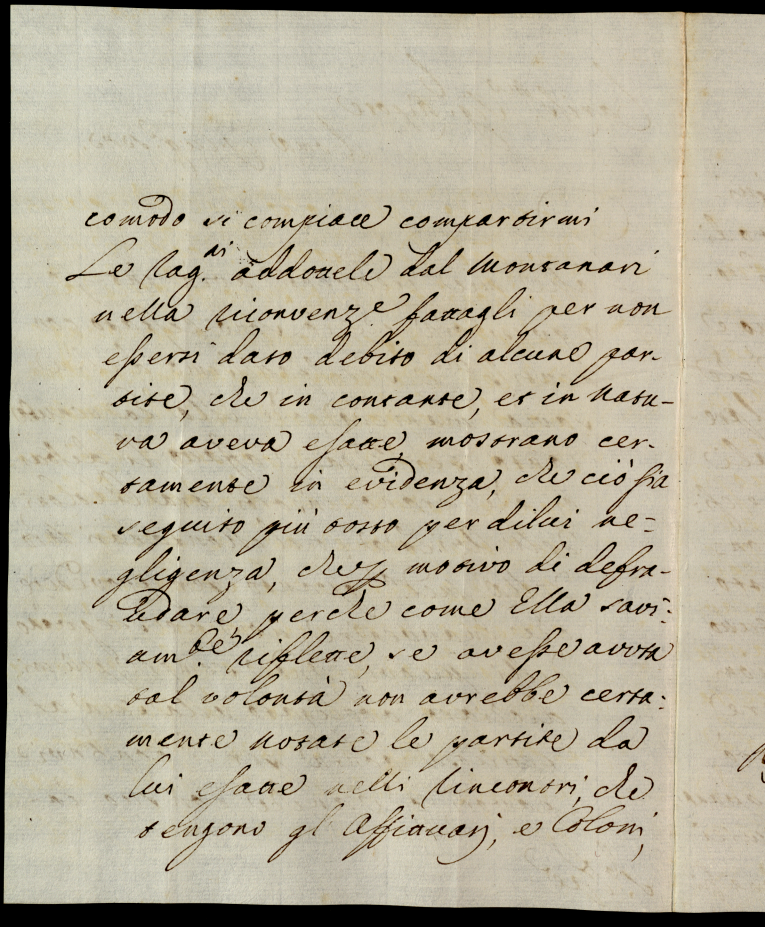 comodo si compiace compartirmi
Le rag.ni addottele dal Montanari
nella riconvenz.e fattagli per non
essersi dato debito di alcune par-
tite, che in contante, et in natu-
ra aveva esatte, mostrano cer-
tamente in evidenza, che ciò sia
seguito più tosto per di lui ne=
gligenza, che p motivo di defra-
udare perche come Ella savi:
am.te riflette, se avesse avuta
tal volontà non avrebbe certa:
mente notate le partite da
lui esatte nelli rincontri, che
tengono gl'Affittuarj, e Coloni,